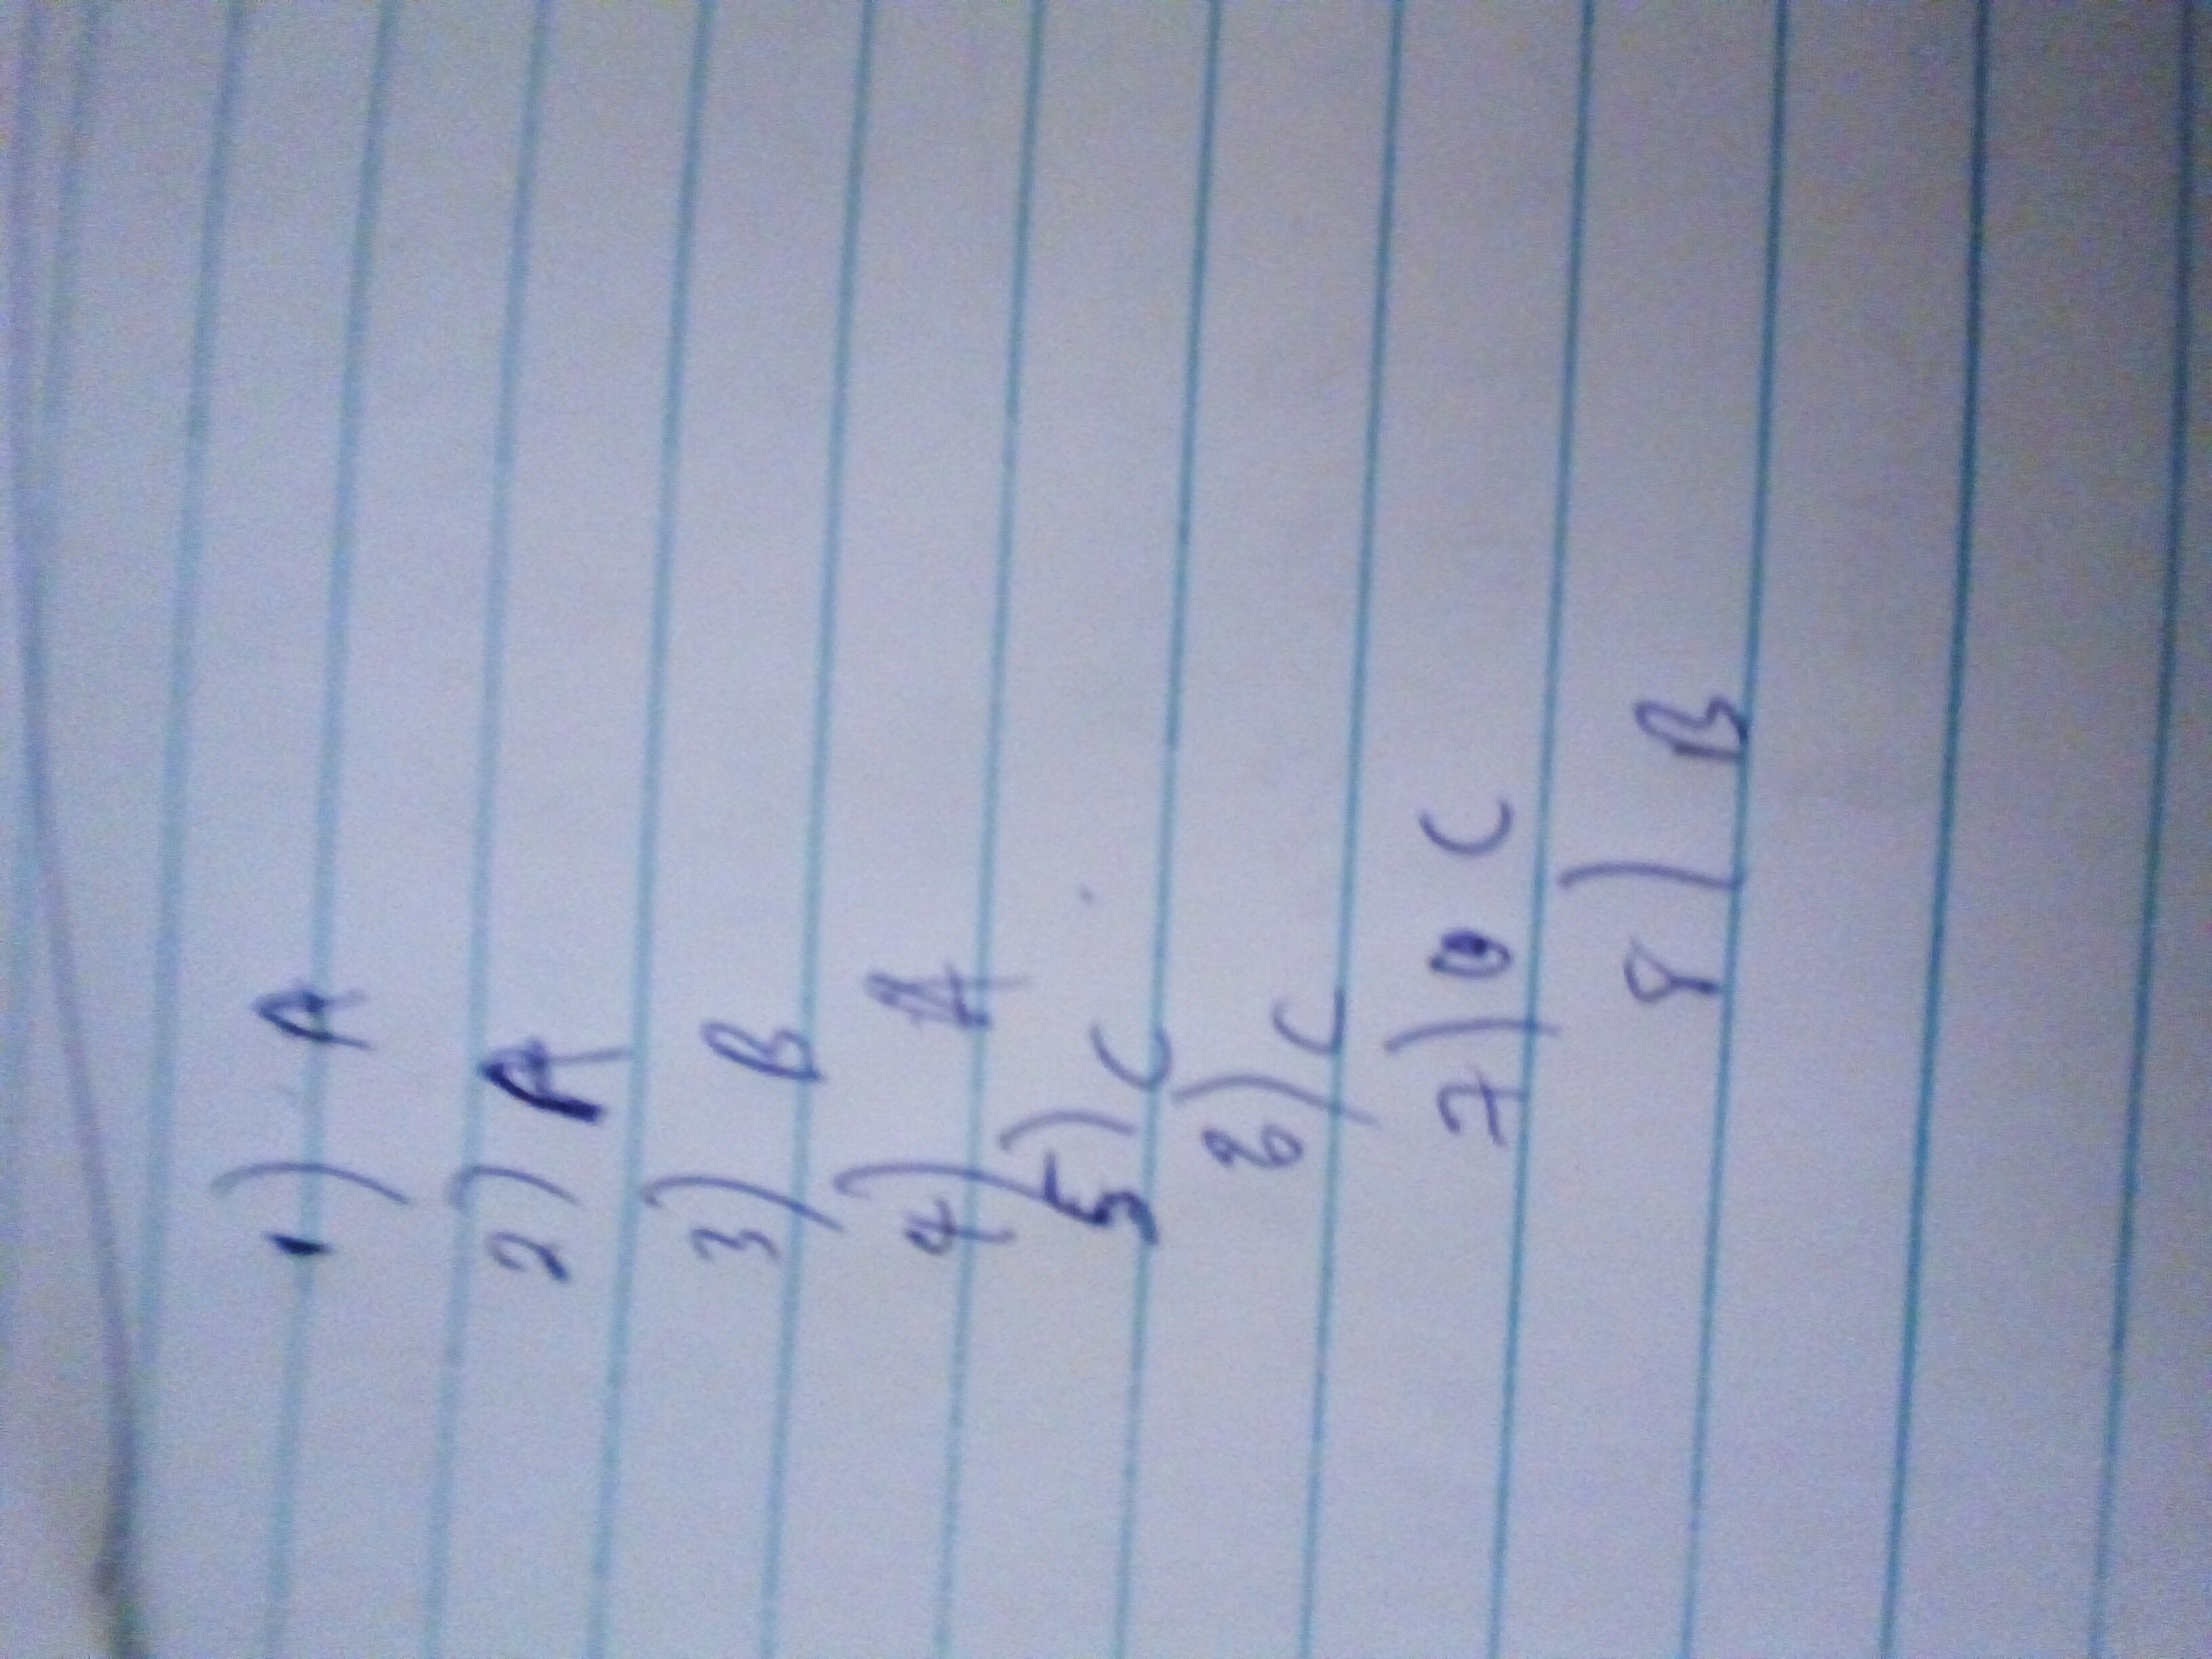 1) A
2) A
3) B
4) A
5) C
6) C
7) C
8) B